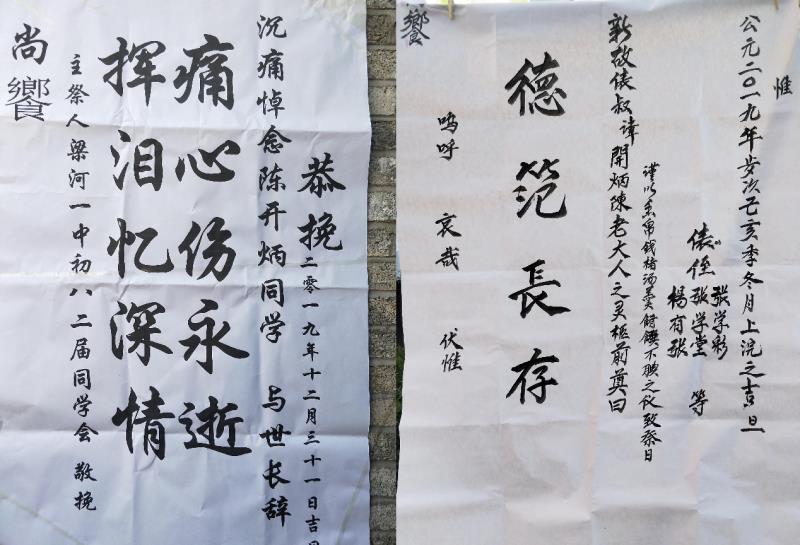 恭挽
二零一九年十二月三十一日吉
沉痛悼念陈开炳同学 与世长辞
痛心伤永逝
挥泪忆深情
主祭人梁河一中初八二届同学会 敬挽
尚饗
惟
公元二〇一九年岁次己亥季冬月上浣之吉旦
俵侄张学彩
张学堂 等
杨有张
谨以 帛钱楮汤 不 之仪致祭曰
新故俵叔讳開炳陳老大人之灵柩前奠曰
德范長存
呜呼 哀哉 伏惟
饗